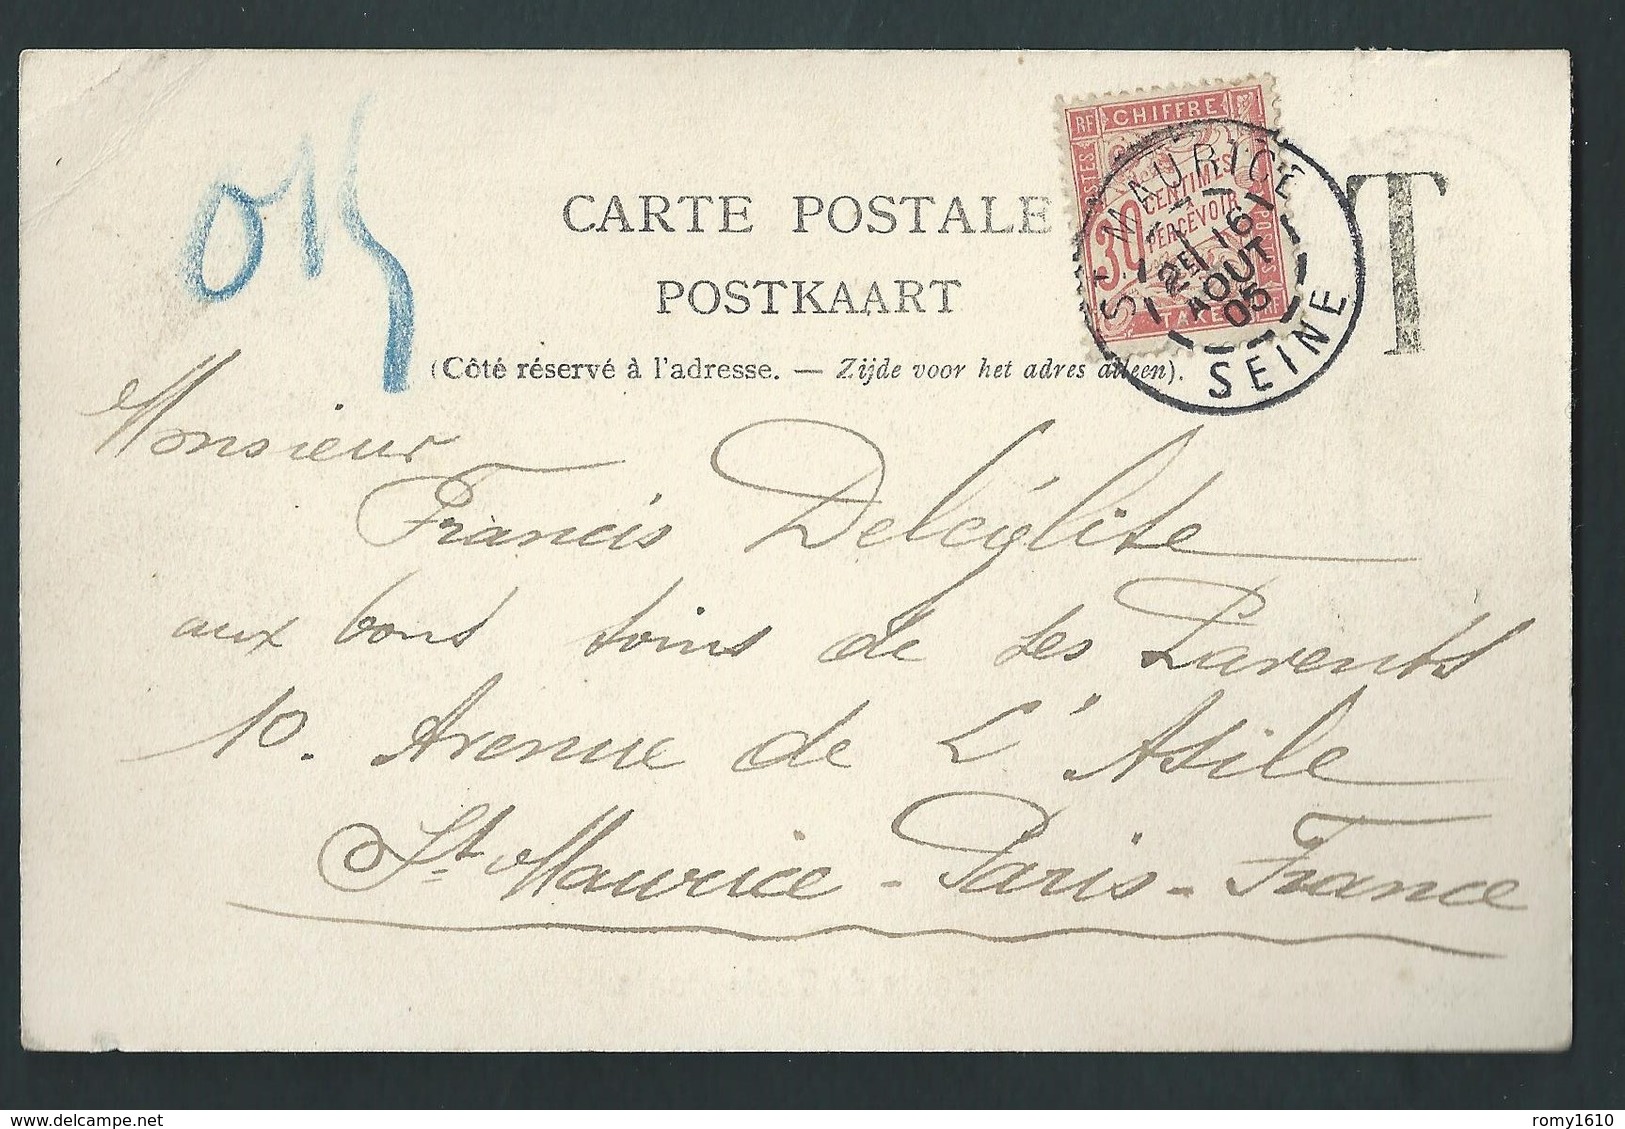 015
CARTE POSTALE
POSTKAART
(Côté réservé à l'adresse. — Zijde voor het adres alleen).
RF CHIFFRE
POSTES
30 CENTIMES
PERCEVOIR
POSTES
TAXE RF
ST MAURICE
2E 16
AOUT
05
SEINE
T
Monsieur
Francis Deleéglise
aux bons soins de ses Parents
10. Avenue de L'Asile
St Maurice - Paris - France
delcampe.net
romy1610